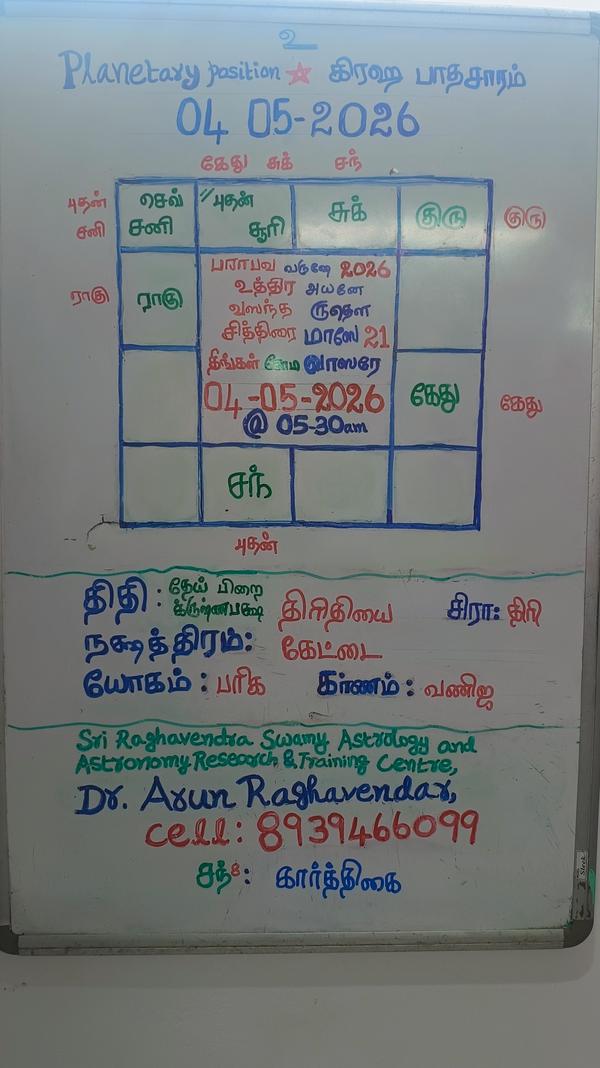 உ
Planetary position கிரஹ பாதசாரம்
04 05-2026
கேது சுக் சந்
புதன் சனி
செவ் சனி
புதன் சூரி
சுக்
குரு
குரு
ராகு
ராகு
பராபவ வருஷே 2026
உத்திர அயனே
வஸந்த ருதௌ
சித்திரை மாஸே 21
திங்கள் சோம வாஸரே
04-05-2026
@ 05-30am
கேது
கேது
சந்
புதன்
திதி : தேய் பிறை க்ருஷ்ணபக்ஷே திரிதியை சிரா: திரி
நக்ஷத்திரம்: கேட்டை
யோகம் : பரிக கரணம் : வணிஜ
Sri Raghavendra Swamy Astrology and
Astronomy Research & Training Centre,
Dr. Arun Raghavendar,
Cell: 8939466099
சந்8: கார்த்திகை